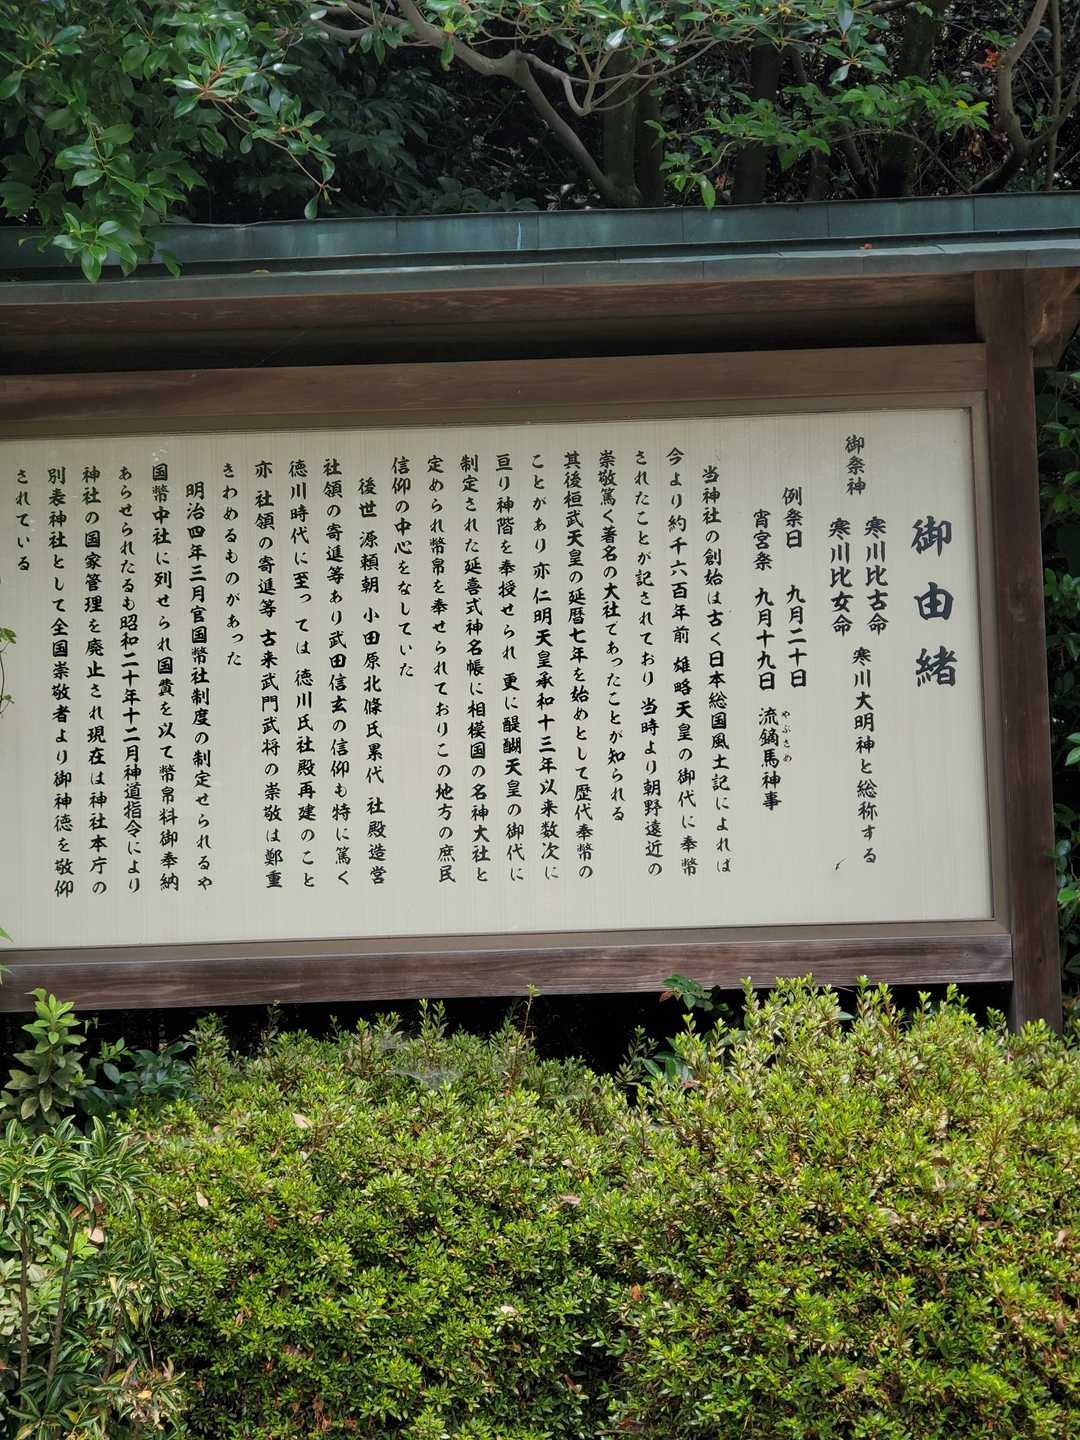 御由緒
御祭神
寒川比古命
寒川比女命
寒川大明神と総称する
例祭日 九月二十日
宵宮祭 九月十九日 流鏑馬神事
やぶさめ
当神社の創始は古く日本総国風土記によれば
今より約千六百年前 雄略天皇の御代に奉幣
されたことが記されており 当時より朝野遠近の
崇敬篤く著名の大社であったことが知られる
其後桓武天皇の延暦七年を始めとして歴代奉幣の
ことがあり 亦 仁明天皇承和十三年以来数次に
亘り神階を奉授せられ 更に醍醐天皇の御代に
制定された延喜式神名帳に相模国の名神大社と
定められ幣帛を奉せられておりこの地方の庶民
信仰の中心をなしていた
後世 源頼朝 小田原北條氏累代 社殿造営
社領の寄進等あり武田信玄の信仰も特に篤く
徳川時代に至っては 徳川氏社殿再建のこと
亦 社領の寄進等 古来武門武将の崇敬は鄭重
きわめるものがあった
明治四年三月官国幣社制度の制定せられるや
国幣中社に列せられ国費を以て幣帛料御奉納
あらせられたるも昭和二十年十二月神道指令により
神社の国家管理を廃止され現在は神社本庁の
別表神社として全国崇敬者より御神徳を敬仰
されている